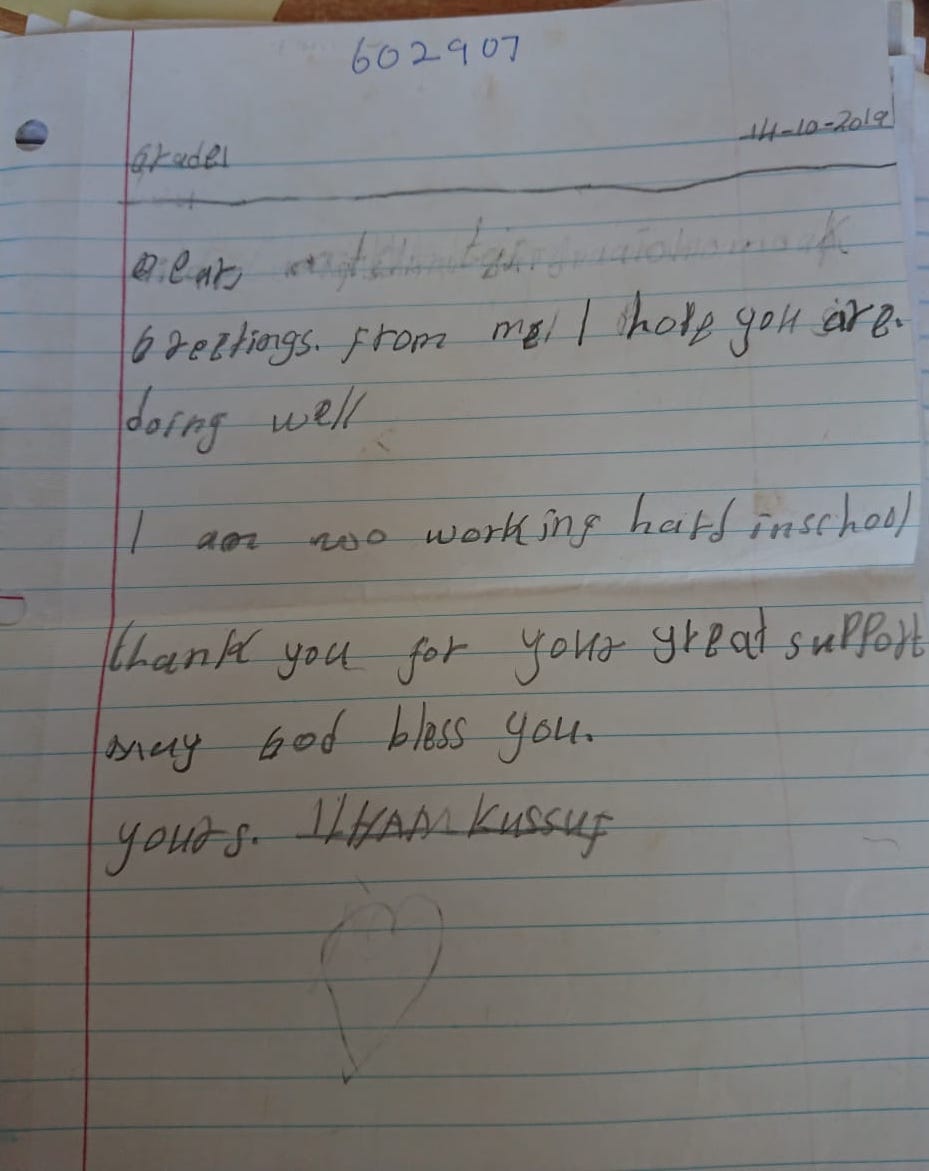 602907
14-10-2019
Grade1
Dear
Greetings. from me, I hope you are.
doing well
I am working hard inschool
thank you for your great support
may God bless you.
yours. ILHAM Kussuf